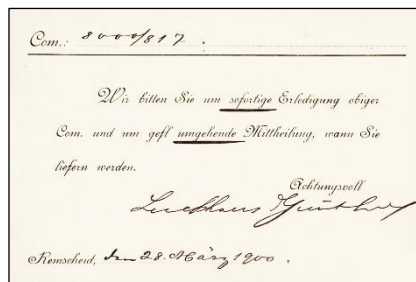 Com.: 8000/817.
Wir bitten Sie um sofortige Erledigung obiger
Com. und um gefl umgehende Mittheilung, wann Sie
liefern werden.
Achtungsvoll
Luckhaus Günther
Remscheid, den 28. März 1900.